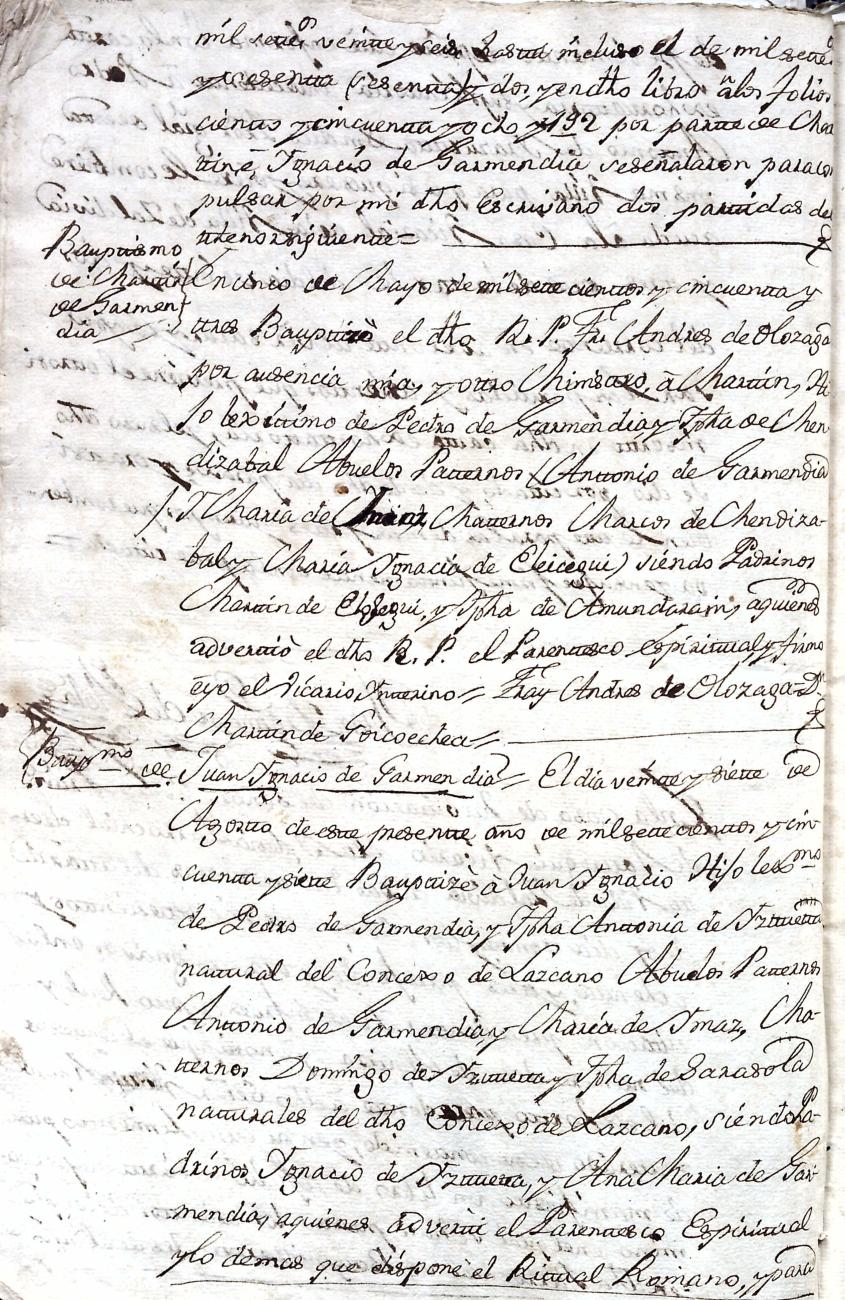 mil setec.s veinte y seis hasta incluso el de mil setec.s
y sesenta (sesenta) y dos, y en dho libro â los folios
ciento y cincuenta y ocho y 192 por parte de Mar
tin, è Ygnacio de Garmendia se señalaron para com
pulsar por mi dho Escrivano dos partidas del
thenor siguiente =
Bauptismo
de Martin
de Garmen
dia
En cinio de Mayo de mil sete cientos y cincuenta y
tres Bauptizò el dho R. P. Fr. Andres de Olozaga
por ausencia mia, y otro Ministro, â Martin, Hi
jo lexitimo de Pedro de Garmendia y Jpha de Men
dizabal Abuelos Patternos Anttonio de Garmendia
Y Maria de Maternos Marcos de Mendiza-
bal y Maria Ygnacia de Eleicegui) siendo Padrinos
Martin de y Jpha de Amundarain, a quienes
advertiò el dho R. P. el Parentesco Espiritual y firmo
è yo el Vicario Ynterino = Fray Andres de Olozaga = D.n
Martin de Goicoechea =
Baup.mo de Juan Ygnacio de Garmendia = El dia veinte y siete de
Agosto de este presente año de mil sette cientos y cin
cuenta y siete Bauptizè à Juan Ygnacio Hijo lex.mo
de Pedro de Garmendia, y Jpha Anttonia de Yztuetta
nattural del Concexo de Lazcano Abuelos Patternos
Antonio de Garmendia y Maria de Ymaz, Ma-
tternos Domingo de Yztuetta y Jpha de Sarasola
natturales del dho Concexo de Lazcano, siendo Pa-
drinos Ygnacio de Yztuetta, y Ana Maria de Gar
mendia, a quienes adverti el Parentesco Espiritual
y lo demas que dispone el Ritual Romano, y para